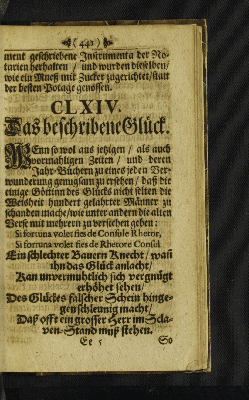 ( 442 )
ment geschriebene Instrumenta der No-
tarien herhalten / und wurden dieselben /
wie ein Mueß mit Zucker zugerichtet / statt
der besten Potage genossen.
CLXIV.
Das beschribene Glück.
WEnn so wol aus jetzigen / als auch
vormahligen Zeiten / und deren
Jahr-Büchern zu eines jeden Ver-
wunderung genugsam zu ersehen / daß die
einige Göttinn des Glücks nicht selten die
Weisheit hundert gelahrter Männer zu
schanden mache / wie unter andern die alten
Verse mit mehrern zu verstehen geben:
Si fortuna volet fies de Consule Rhetor,
Si fortuna volet fies de Rhetore Consul
Ein schlechter Bauern Knecht / wañ
ihn das Glück anlacht /
Kan unvermuhtlich sich vergnügt
erhöhet sehen /
Des Glückes falscher Schein hinge-
gen schleunig macht /
Daß offt ein grosser Herr im Scla-
ven-Stand muß stehen.
Ee 5 So